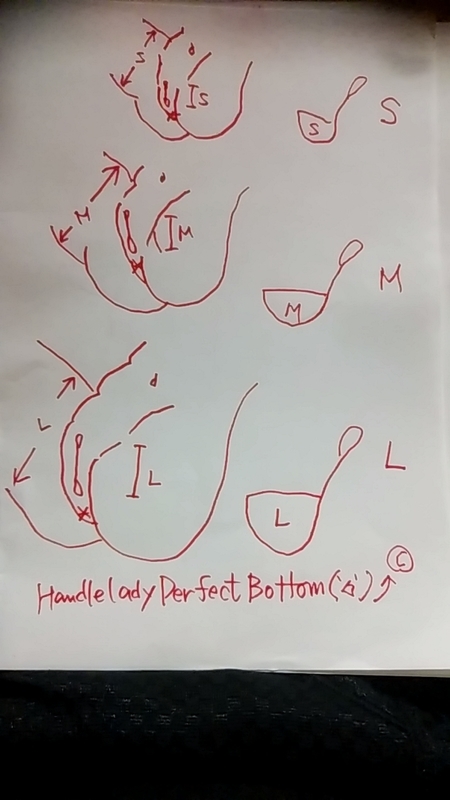 S
S S S
M
M M M
L
L L L
Handlelady Perfect Bottom('δ')↗ ©